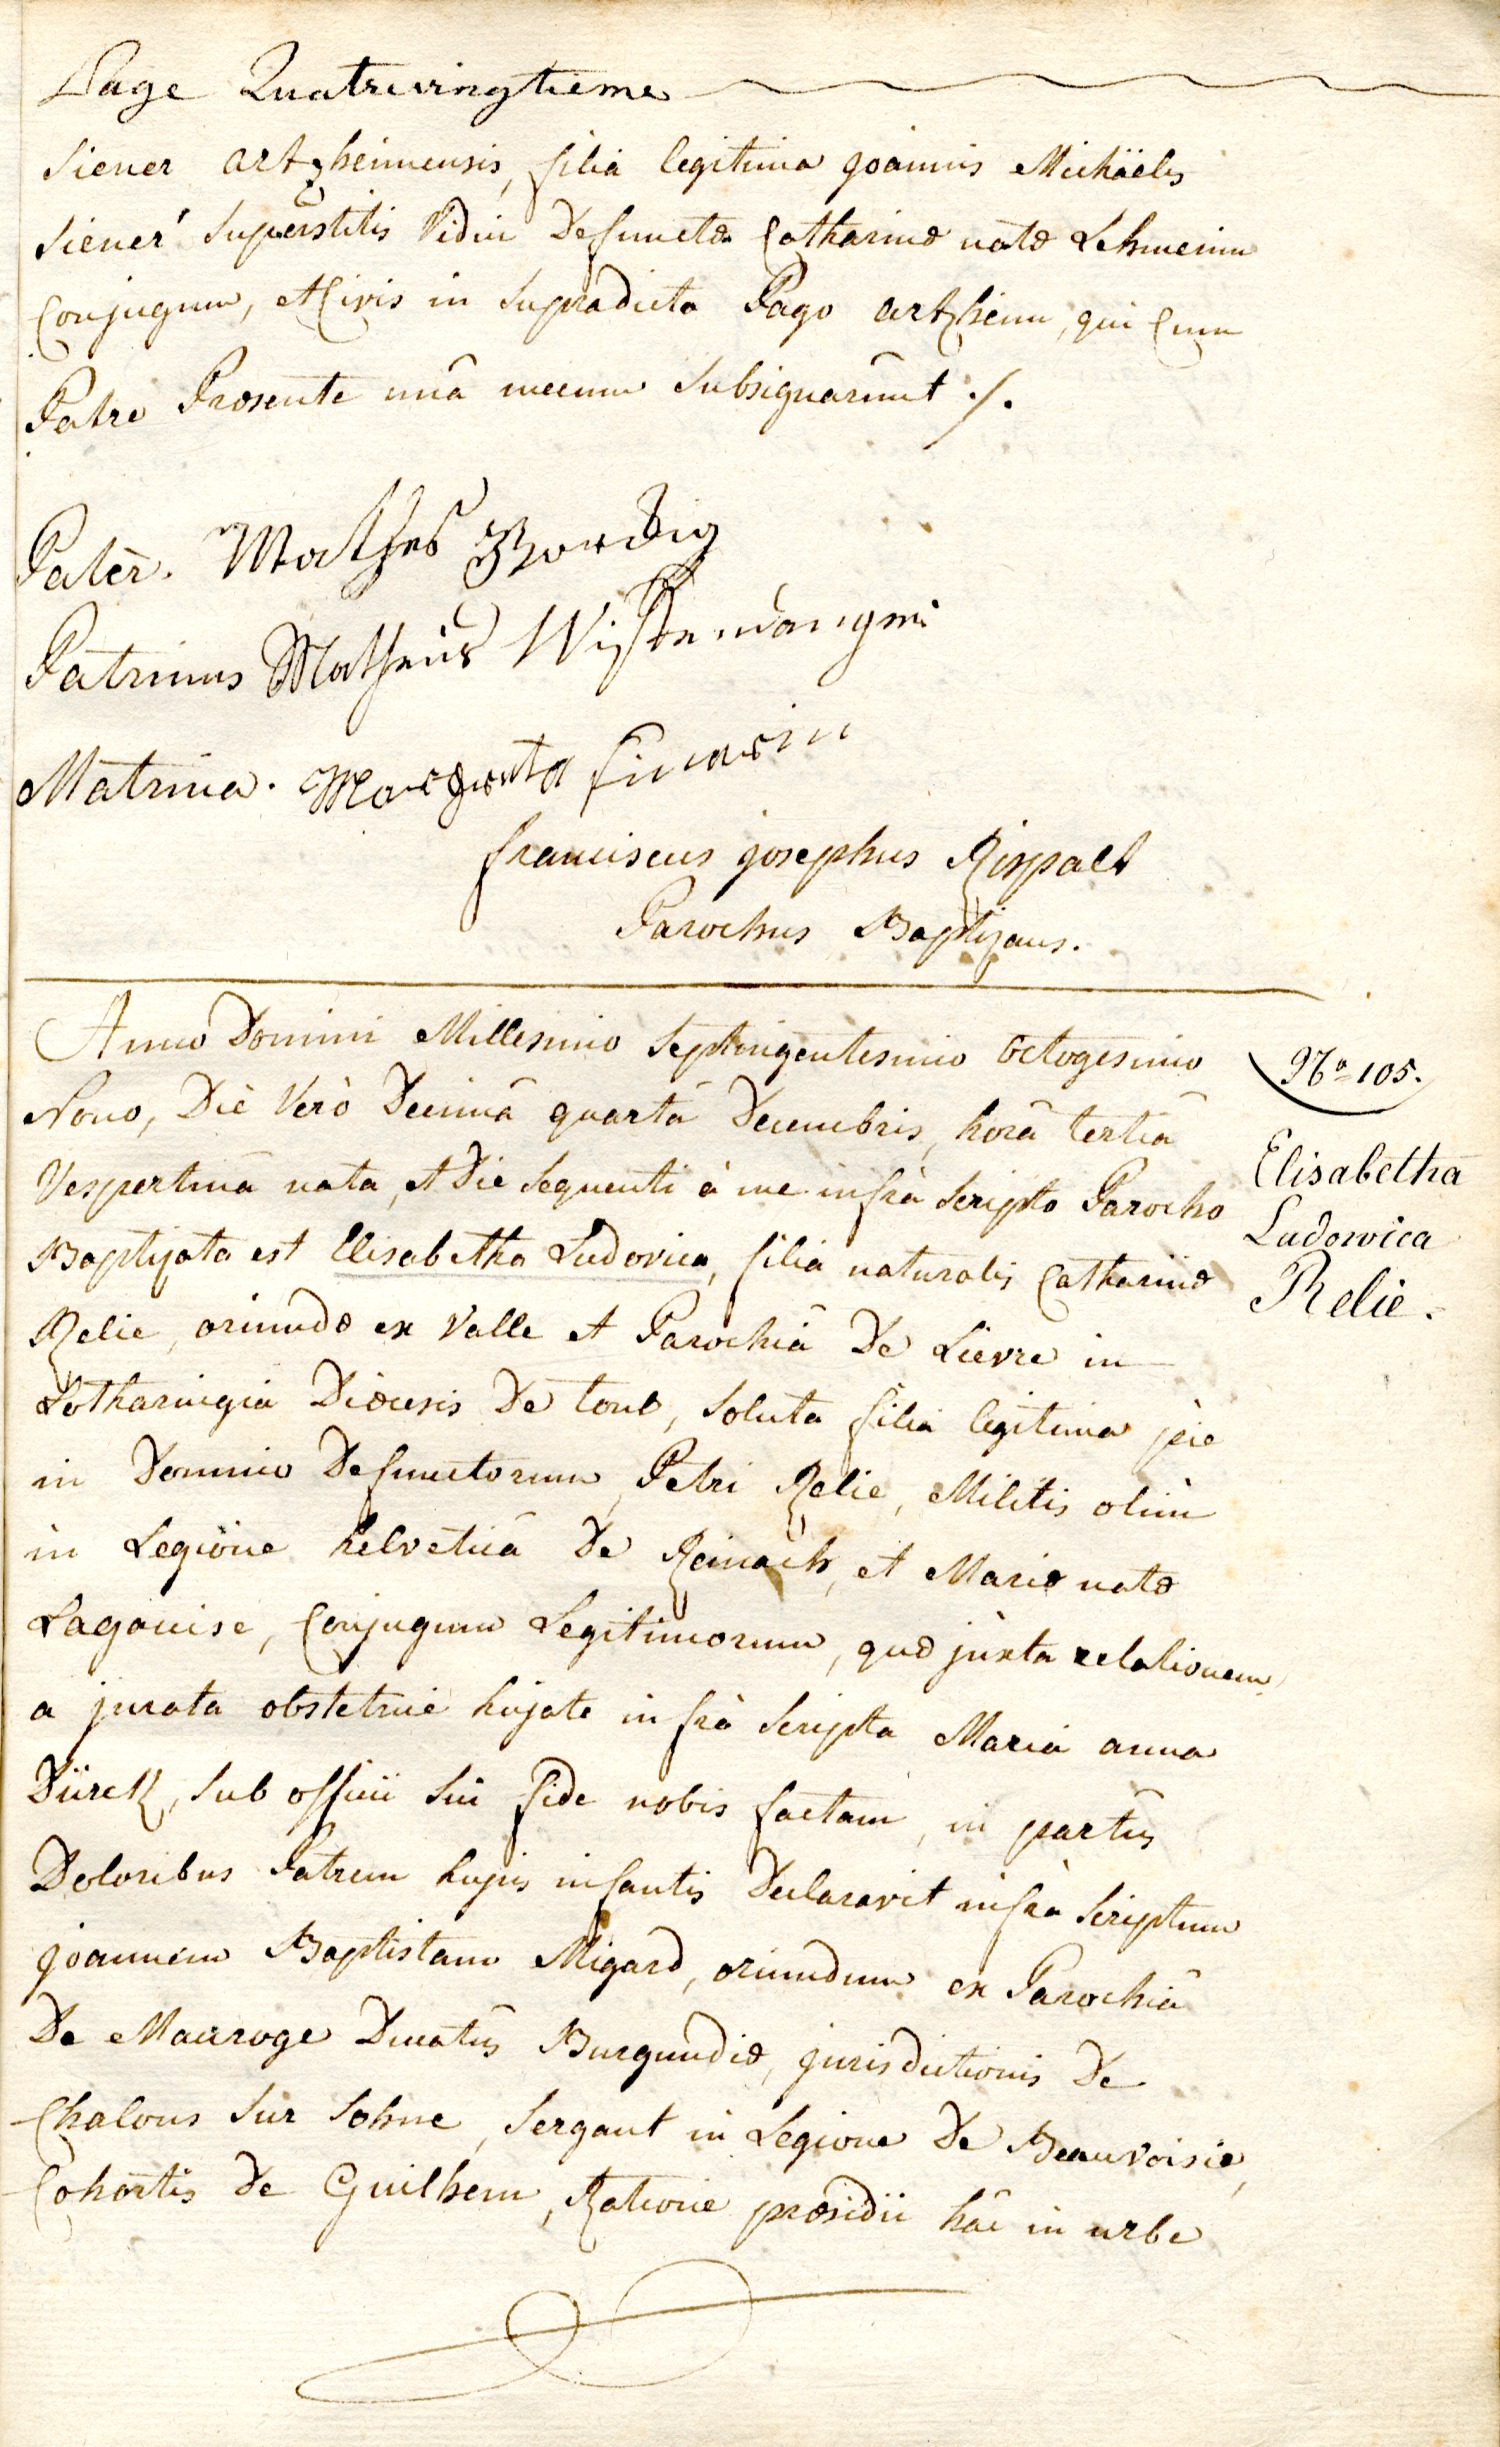 Page Quatrevingtieme
Siener artzheimensis, filia legitima joannis Michäelis
Siener superstitis Vidui Defunctæ Catharinæ natæ Lehmenin
Conjugum, et Civis in supradicto Pago artzheim, qui Cum
Patre Præsente unâ mecum subsignarunt ./.
Pater. Mathes
Patrinus Matheus
Matrina. Margreta
franciscus josephus Rispalt
Parochus Baptizans.
Anno Domini Millesimo Septingentesimo octogesimo
Nono, Die Verò Decimâ quartâ Decembris, horâ tertiâ
Vespertinâ nata, et Die sequenti à me infrà scripto Parocho
Baptizata est Elisabetha Ludovica, filia naturalis Catharinæ
Relie, oriundæ ex Valle et Parochiâ De Lievre in
Lotharingiâ Diœcesis De toul, soluta filia legitima pie
in Domino Defunctorum, Petri Relie, Militis olim
in Legione helveticâ De Reinach, et Mariæ natæ
Lagouise, Conjugum Legitimorum, quæ juxta relationem
a jurata obstetrice hujate infrà scripta Maria anna
Dürck, sub officii sui fide nobis factam, in partûs
Doloribus Patrem hujus infantis Declaravit infrà scriptum
joannem Baptistam Migard, oriundum ex Parochiâ
De Mauroge Ducatûs Burgundiæ, jurisdictionis De
Chalons sur sohne, sergant in Legione De Beauvoisie,
Cohortis De Guilhem, Ratione præsidii hâc in urbe
No 105.
Elisabetha
Ludowica
Relie.